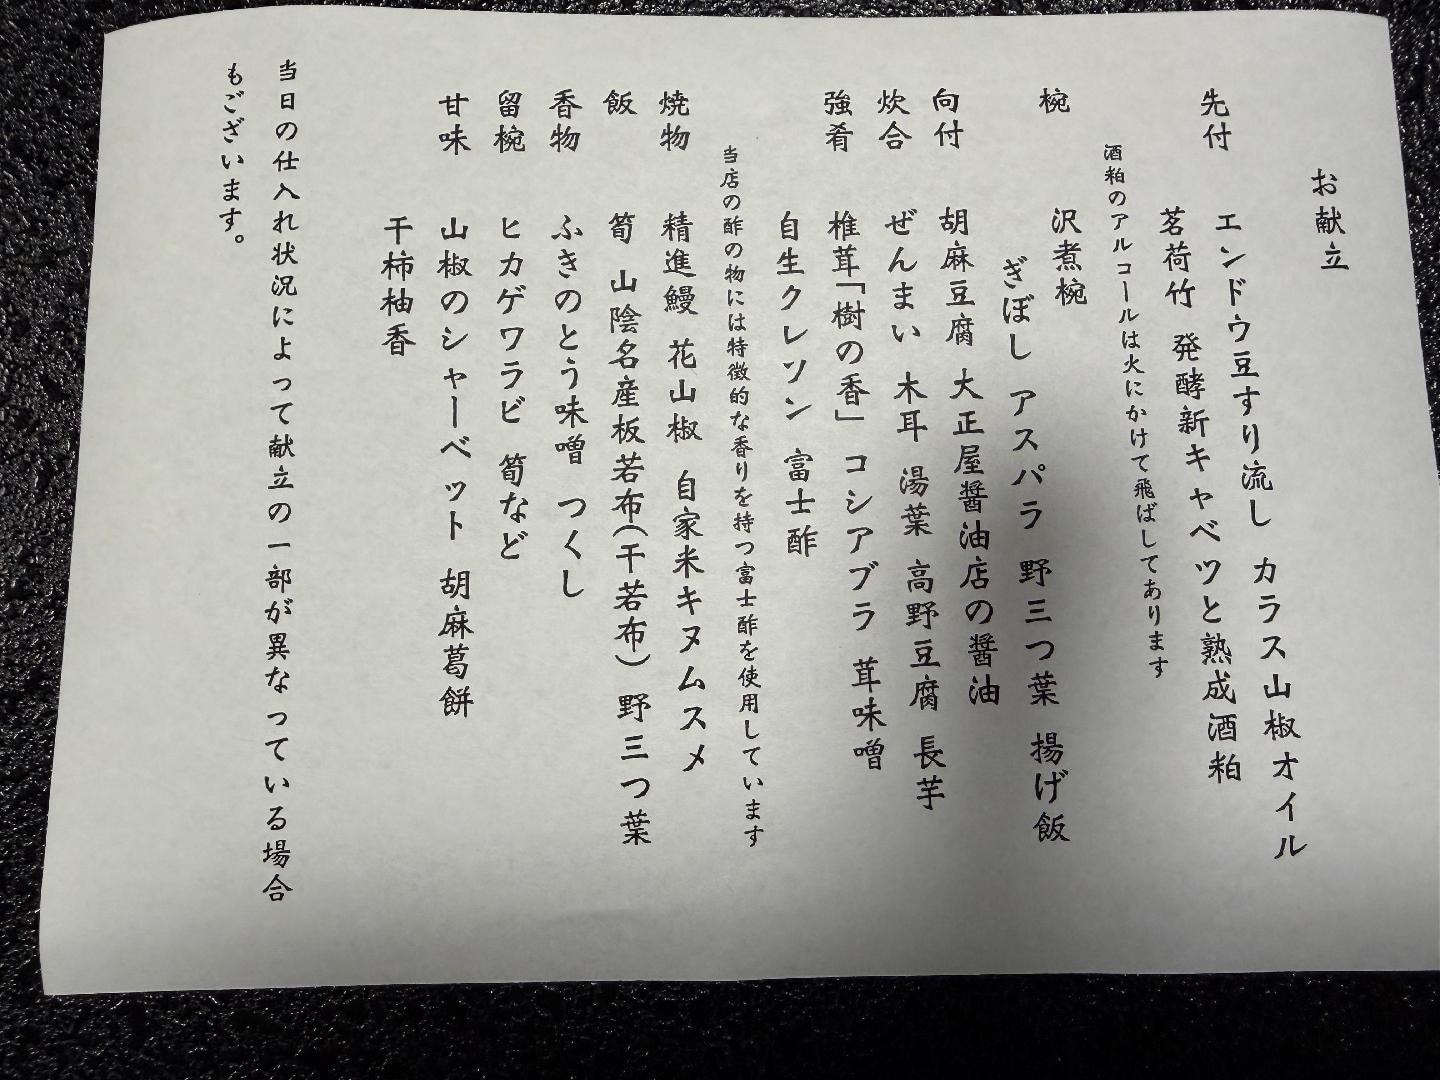 お献立
先付 エンドウ豆すり流し カラス山椒オイル
茗荷竹 発酵新キャベツと熟成酒粕
酒粕のアルコールは火にかけて飛ばしてあります
椀 沢煮椀
ぎぼし アスパラ 野三つ葉 揚げ飯
向付 胡麻豆腐 大正屋醤油店の醤油
炊合 ぜんまい 木耳 湯葉 高野豆腐 長芋
強肴 椎茸「樹の香」 コシアブラ 茸味噌
自生クレソン 富士酢
当店の酢の物には特徴的な香りを持つ富士酢を使用しています
焼物 精進鰻 花山椒 自家米キヌムスメ
飯 筍 山陰名産板若布(干若布) 野三つ葉
香物 ふきのとう味噌 つくし
留椀 ヒカゲワラビ 筍など
甘味 山椒のシャーベット 胡麻葛餅
干柿柚香
当日の仕入れ状況によって献立の一部が異なっている場合
もございます。